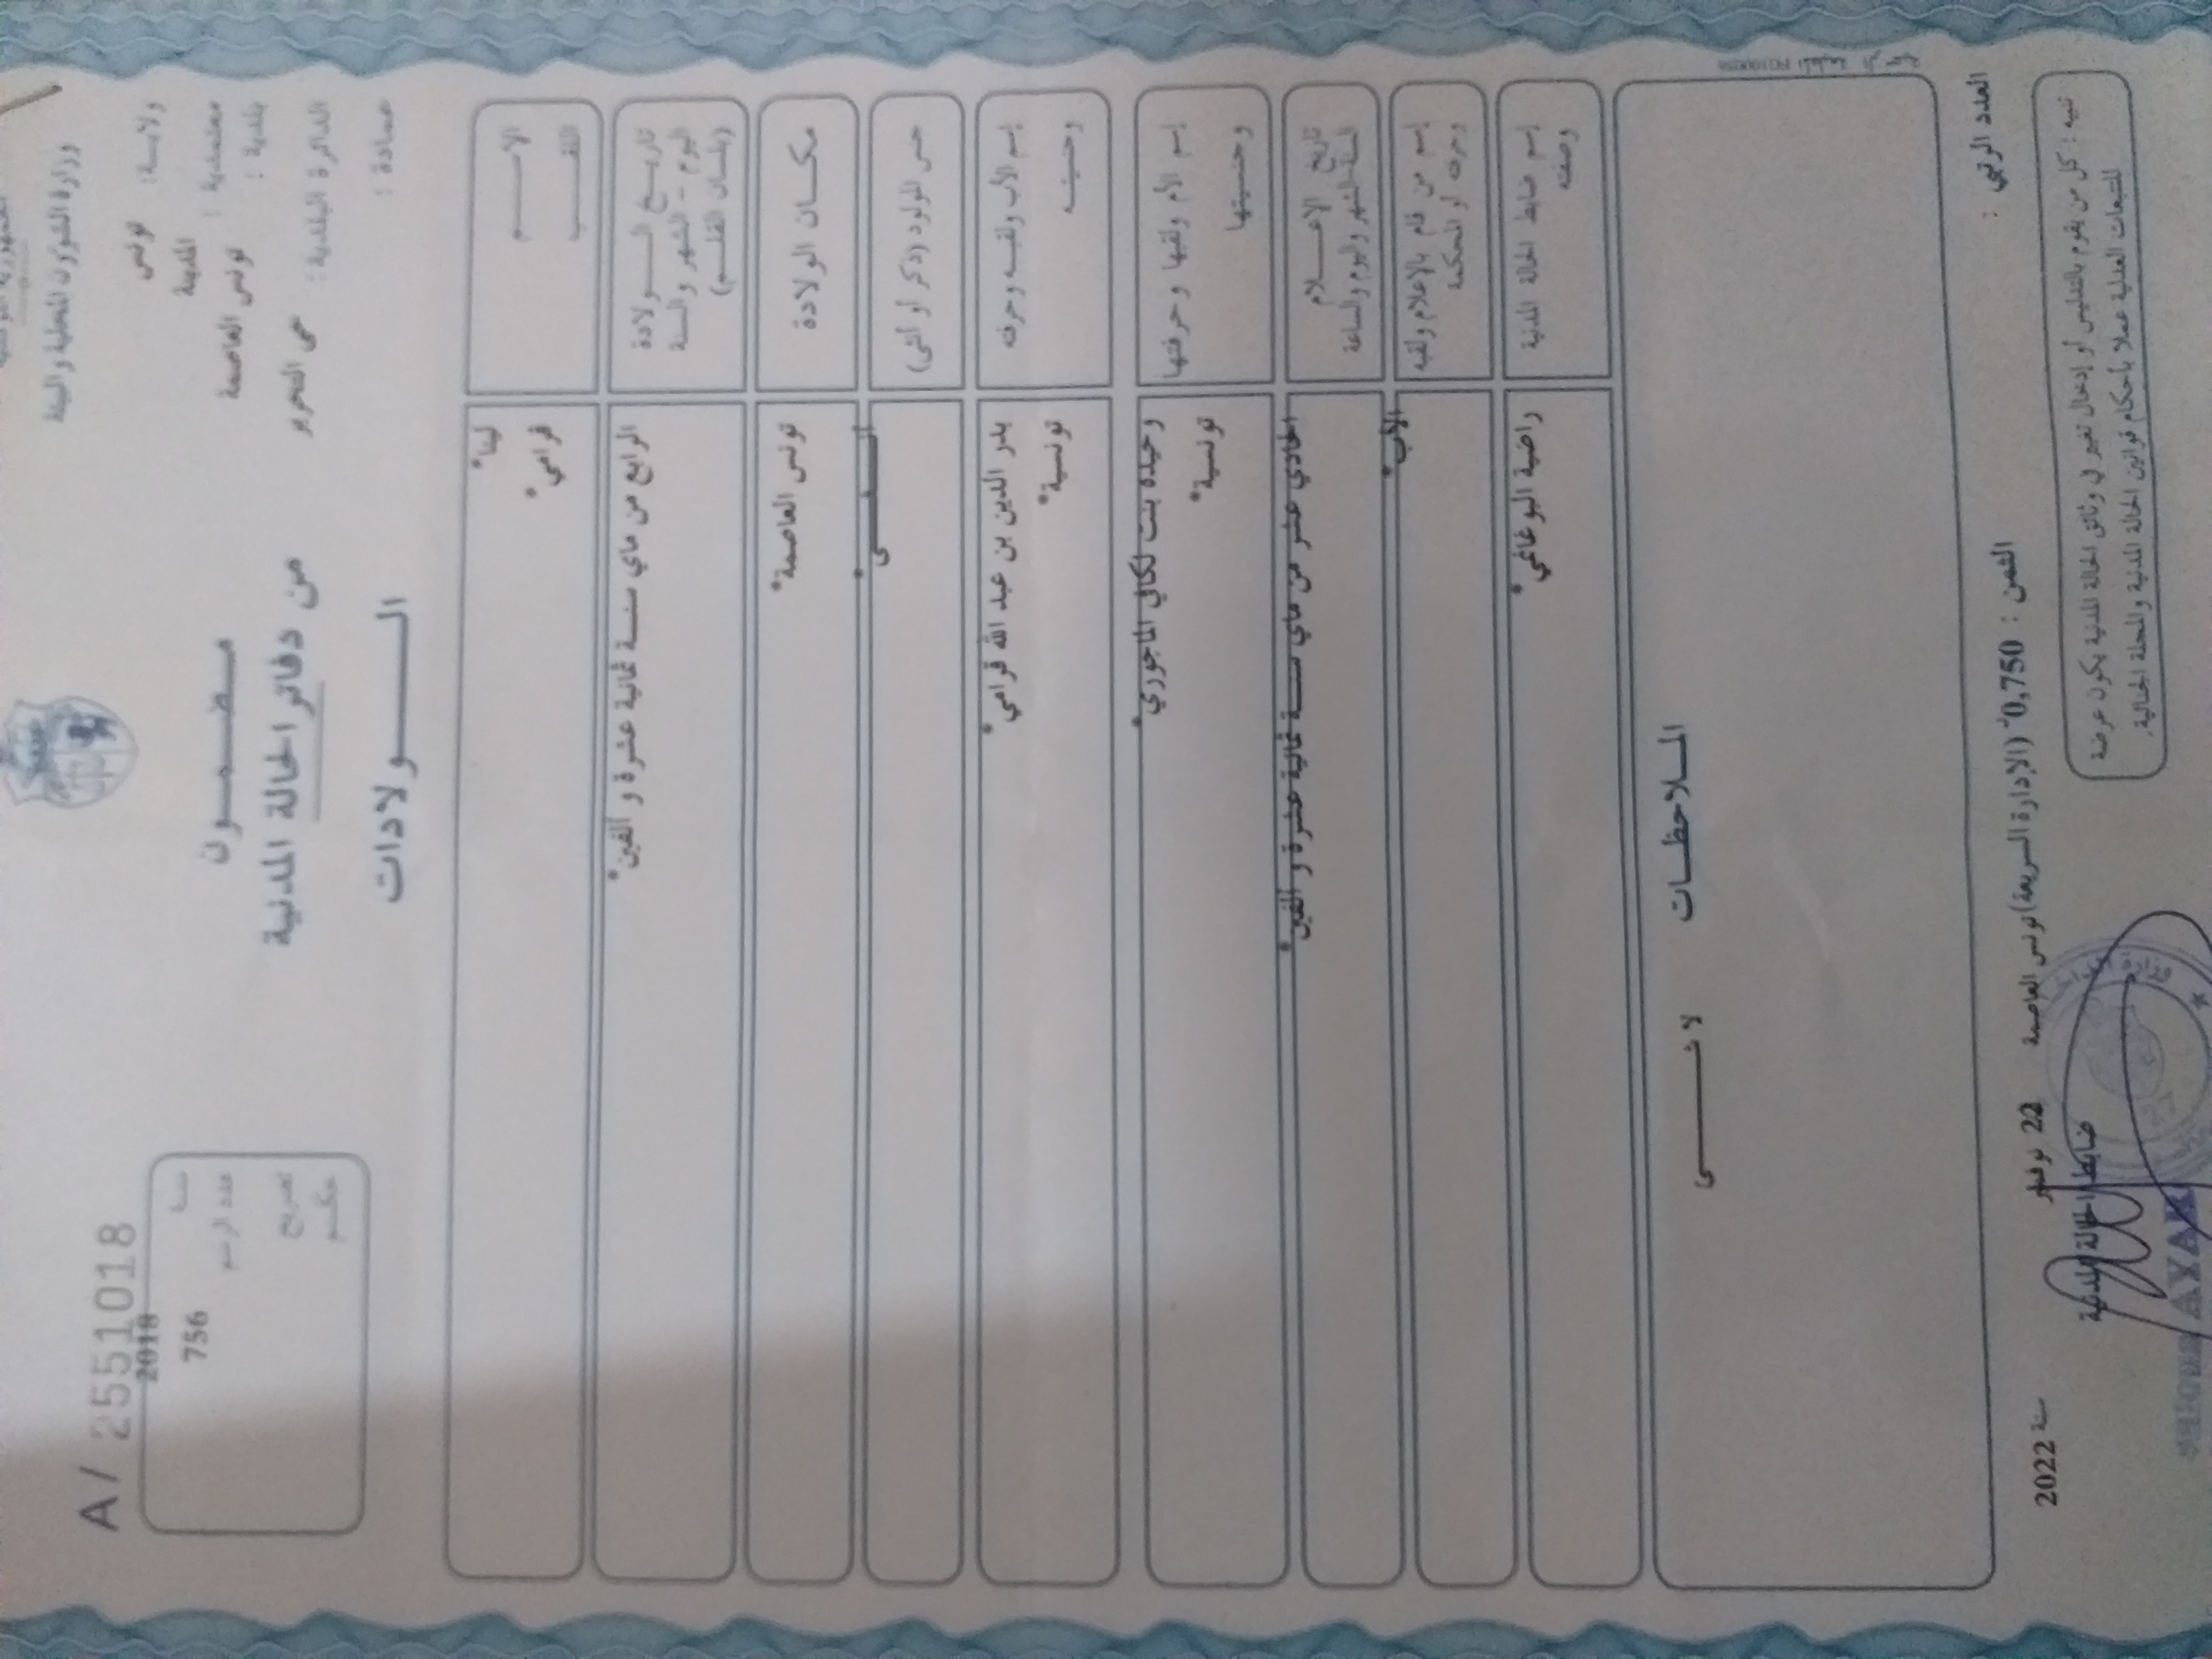 وزارة الشؤون المحلية والبيئة
ولاية: تونس
معتمدية: المدينة
بلدية: تونس العاصمة
الدائرة البلدية: حي التحرير
عمادة:
مضمون
من دفاتر الحالة المدنية
الولادات
A/ 2551018
2018
عدد الرسم 756
تصريح
حكم
الاسم لينا*
اللقب قرامي*
تاريخ الولادة الرابع من ماي سنة ثمانية عشرة و الفين*
اليوم - الشهر والسنة
(بلسان القلم)
مكان الولادة تونس العاصمة*
جنس المولود (ذكر أو أنثى) انثى*
إسم الأب ولقبه وحرفته بدر الدين بن عبد الله قرامي*
وجنسيته تونسية*
إسم الأم ولقبها وحرفتها وحيده بنت لكالي الماجوري*
وجنسيتها تونسية*
تاريخ الإعلام الحادي عشر من ماي سنة ثمانية عشرة و الفين*
السنة والشهر واليوم والساعة
إسم من قام بالإعلام ولقبه الاب*
وحرفته أو المحكمة
إسم ضابط الحالة المدنية راضية البوغانمي*
وصفته
الملاحظات
لا شى
العدد الرتبي :
الثمن : 0,750 (الإدارة السريعة) تونس العاصمة 22 نوفمبر سنة 2022
ضابط الحالة المدنية
تنبيه : كل من يقوم بالتدليس أو إدخال تغيير في وثائق الحالة المدنية يكون عرضة
للتتبعات العدلية عملا بأحكام قوانين الحالة المدنية والمجلة الجنائية.